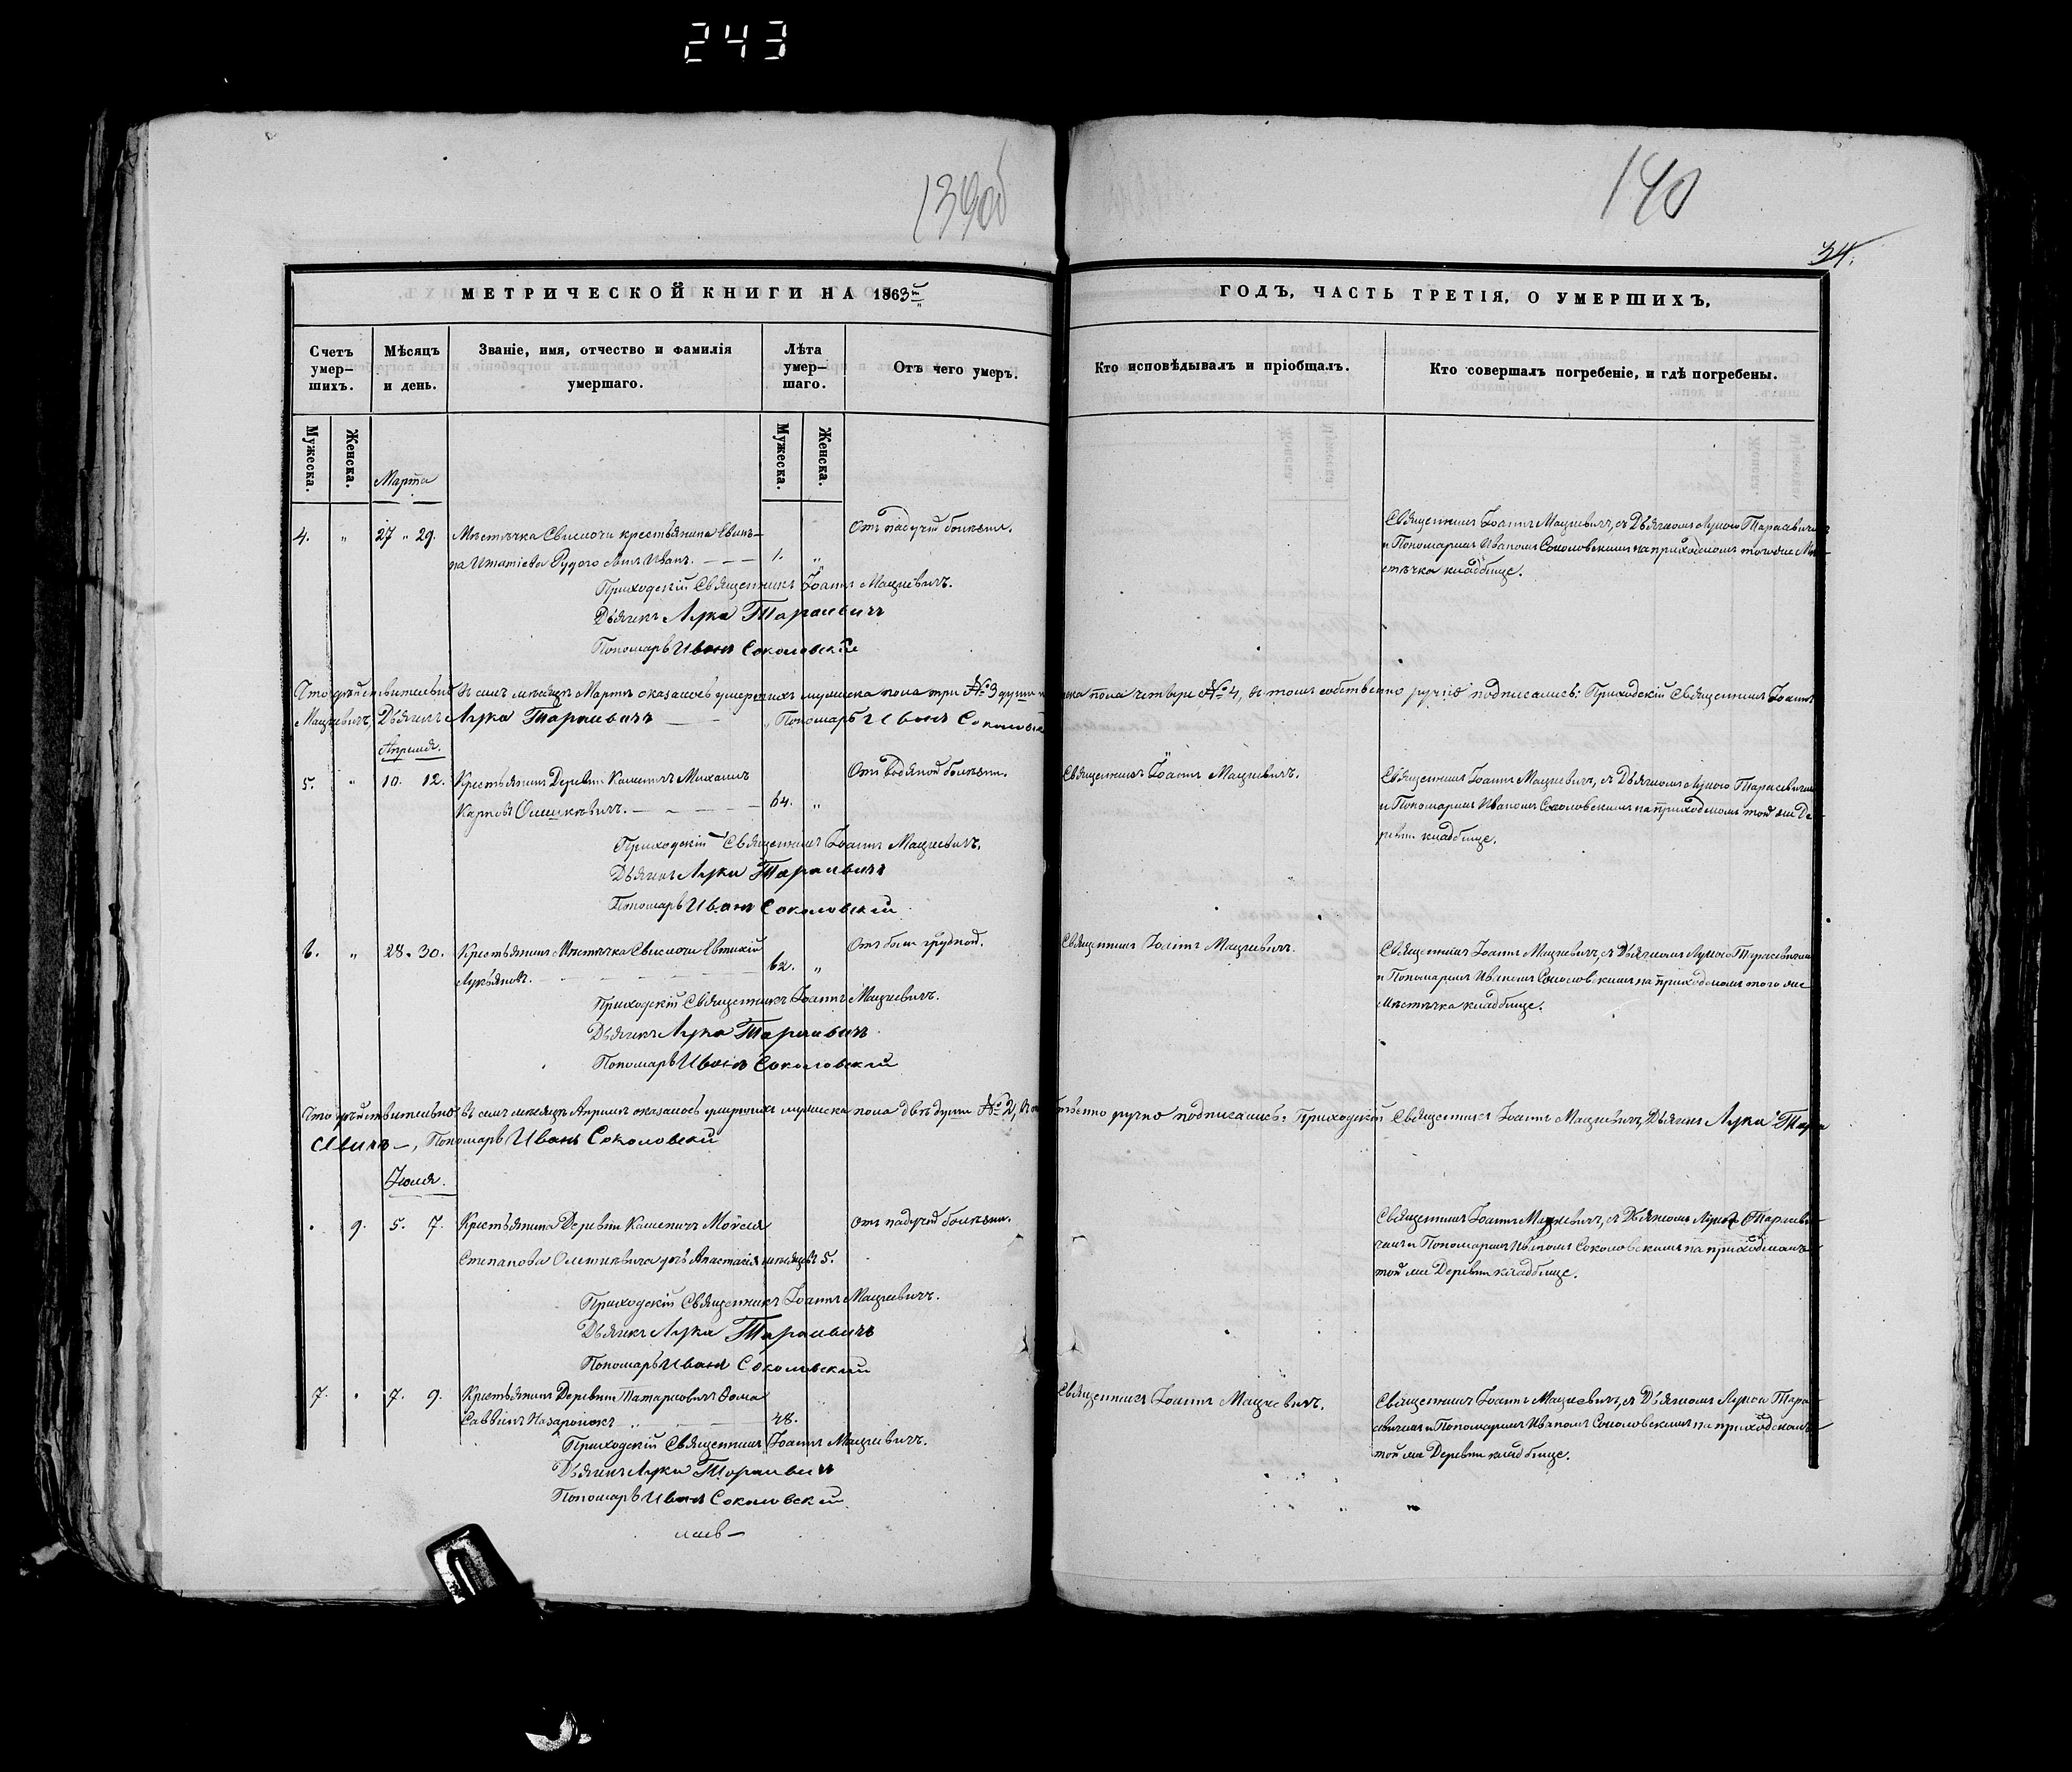 243
139об
140
34.
МЕТРИЧЕСКОЙ КНИГИ НА 1863й
ГОДЪ, ЧАСТЬ ТРЕТІЯ, О УМЕРШИХЪ,
Счетъ умер-шихъ.
Мѣсяцъ и день.
Званіе, имя, отчество и фамилія умершаго.
Лѣта умер-шаго.
Отъ чего умеръ.
Кто исповѣдывалъ и пріобщалъ.
Кто совершалъ погребеніе, и гдѣ погребены.
Мужеска.
Женска.
Мужеска.
Женска.
Марта
4. „ 27 „ 29. Мѣстечка Свислочи крестьянина
Рудого сынъ Иванъ. 1. „
Отъ падучей болѣзни.
Священникъ Іоаннъ Мацкевичъ, съ Дьячкомъ Лукою Тарасевичемъ
и Пономаремъ Иваномъ Соколовскимъ на приходскомъ того же Мѣ-
стечка кладбище.
Приходскій Священникъ Іоаннъ Мацкевичъ.
Дьячекъ Лука Тарасевичъ
Пономарь Иванъ Соколовскій
Что дѣйствительно въ семъ мѣсяцѣ Мартѣ оказалось умершихъ мужеска пола три №3 души
пола четыри №4, въ томъ собственно ручно подписались: Приходскій Священникъ Іоаннъ
Мацкевичъ, Дьячекъ Лука Тарасевичъ „ Пономарь Иванъ Соколовскій
Апреля.
5. „ 10. 12. Крестьянинъ Деревни Каменичъ Михаилъ
Карповъ 64. „
Отъ водяной болѣзни.
Священникъ Іоаннъ Мацкевичъ.
Священникъ Іоаннъ Мацкевичъ, съ Дьячкомъ Лукою Тарасевичемъ
и Пономаремъ Иваномъ Соколовскимъ на приходскомъ той же Де-
ревни кладбище.
Приходскій Священникъ Іоаннъ Мацкевичъ.
Дьячекъ Лука Тарасевичъ
Пономарь Иванъ Соколовскій
6. „ 28. 30. Крестьянинъ Мѣстечка Свислочи Евтихій
Лукьяновъ. 62. „
Отъ боли грудной.
Священникъ Іоаннъ Мацкевичъ.
Священникъ Іоаннъ Мацкевичъ, съ Дьячкомъ Лукою Тарасевичемъ
и Пономаремъ Иваномъ Соколовскимъ на приходскомъ того же
Мѣстечка кладбище.
Приходскій Священникъ Іоаннъ Мацкевичъ.
Дьячекъ Лука Тарасевичъ
Пономарь Иванъ Соколовскій
Что дѣйствительно въ семъ мѣсяцѣ Апрелѣ оказалось умершихъ мужеска пола двѣ души №2,
ручно подписались: Приходскій Священникъ Іоаннъ Мацкевичъ, Дьячекъ Лука Тара
севичъ —, Пономарь Иванъ Соколовскій
Іюля.
„ 9. 5. 7. Крестьянина Деревни Каменичъ Мойсея
Степанова дочь Анастасія мѣсяцевъ 5.
Отъ падучей болѣзни.
Священникъ Іоаннъ Мацкевичъ, съ Дьячкомъ Лукою Тарасеви-
чемъ и Пономаремъ Иваномъ Соколовскимъ на приходскомъ
той же Деревни кладбище.
Приходскій Священникъ Іоаннъ Мацкевичъ.
Дьячекъ Лука Тарасевичъ
Пономарь Иванъ Соколовскій
7. „ 7. 9. Крестьянинъ Деревни Татарковичъ Ѳома
Саввинъ 48.
Священникъ Іоаннъ Мацкевичъ.
Священникъ Іоаннъ Мацкевичъ, съ Дьячкомъ Лукою Тара-
севичемъ и Пономаремъ Иваномъ Соколовскимъ на приходскомъ
той же Деревни кладбище.
Приходскій Священникъ Іоаннъ Мацкевичъ.
Дьячекъ Лука Тарасевичъ
Пономарь Иванъ Соколовскій